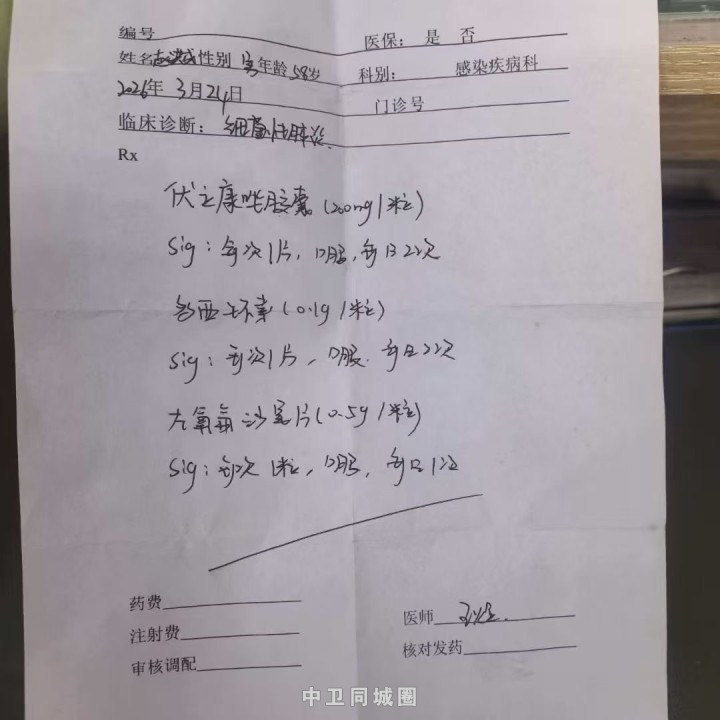 编号 医保： 是 否
姓名 性别 男 年龄 58岁 科别： 感染疾病科
2026年 3月24日 门诊号
临床诊断： 细菌性肺炎
Rx
伏立康唑胶囊 (200mg/粒)
Sig：每次1片，口服，每日2次
多西环素 (0.1g/粒)
Sig：每次1片，口服. 每日2次
左氧氟沙星片 (0.5g/粒)
Sig：每次1粒，口服，每日1次
药费 医师
注射费 核对发药
审核调配
中卫同城圈